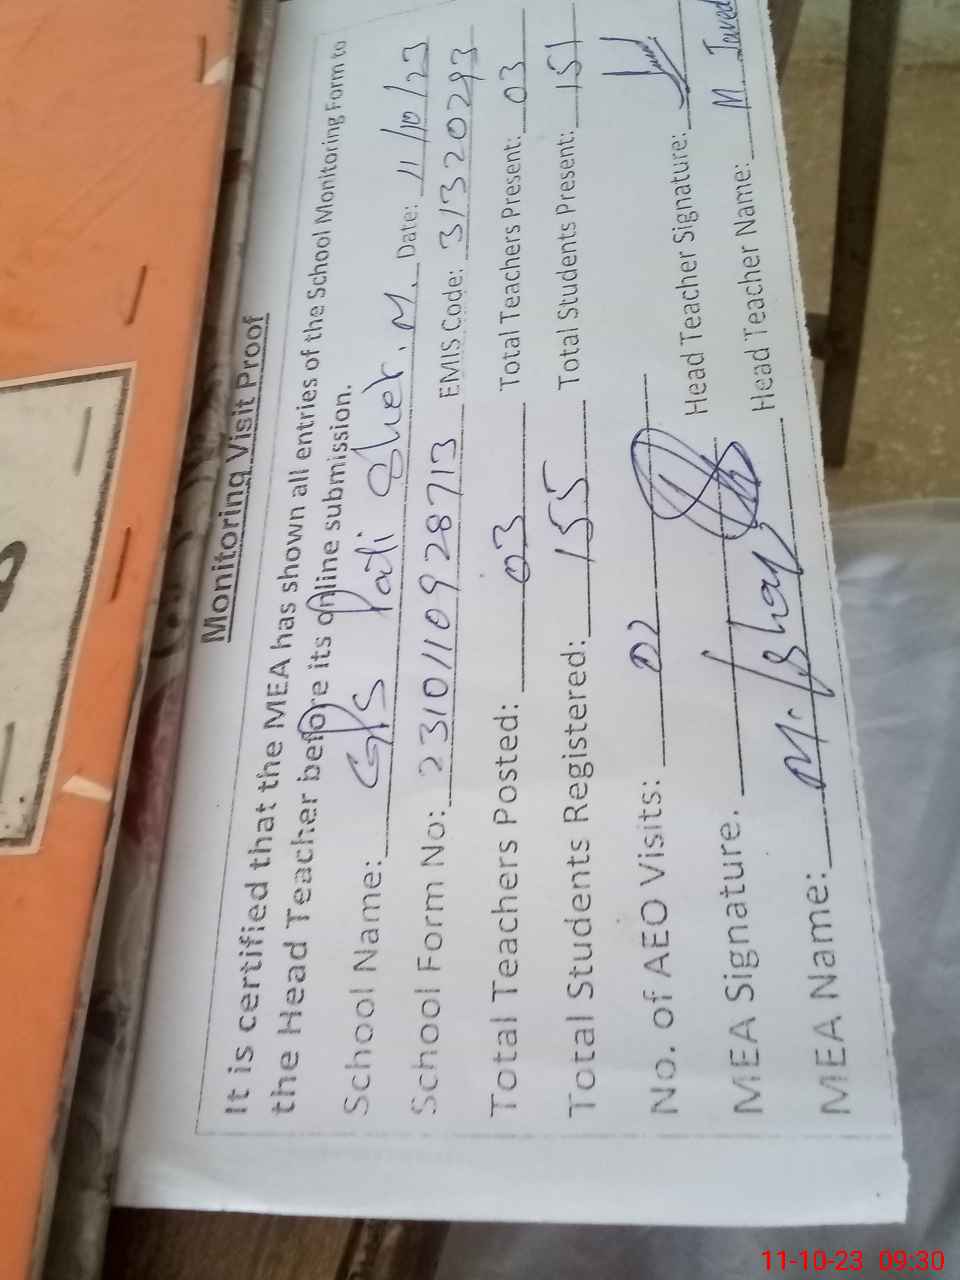 Monitoring Visit Proof
It is certified that the MEA has shown all entries of the School Monitoring Form to
the Head Teacher before its online submission.
School Name: GPS Patti Sher. M. Date: 11/10/23
School Form No: 2310110928713 EMIS Code: 31320293
Total Teachers Posted: 03 Total Teachers Present: 03
Total Students Registered: 155 Total Students Present: 151
No. of AEO Visits: 02
MEA Signature. Head Teacher Signature:
MEA Name: M. Ishaq Head Teacher Name: M. Javed
11-10-23 09:30